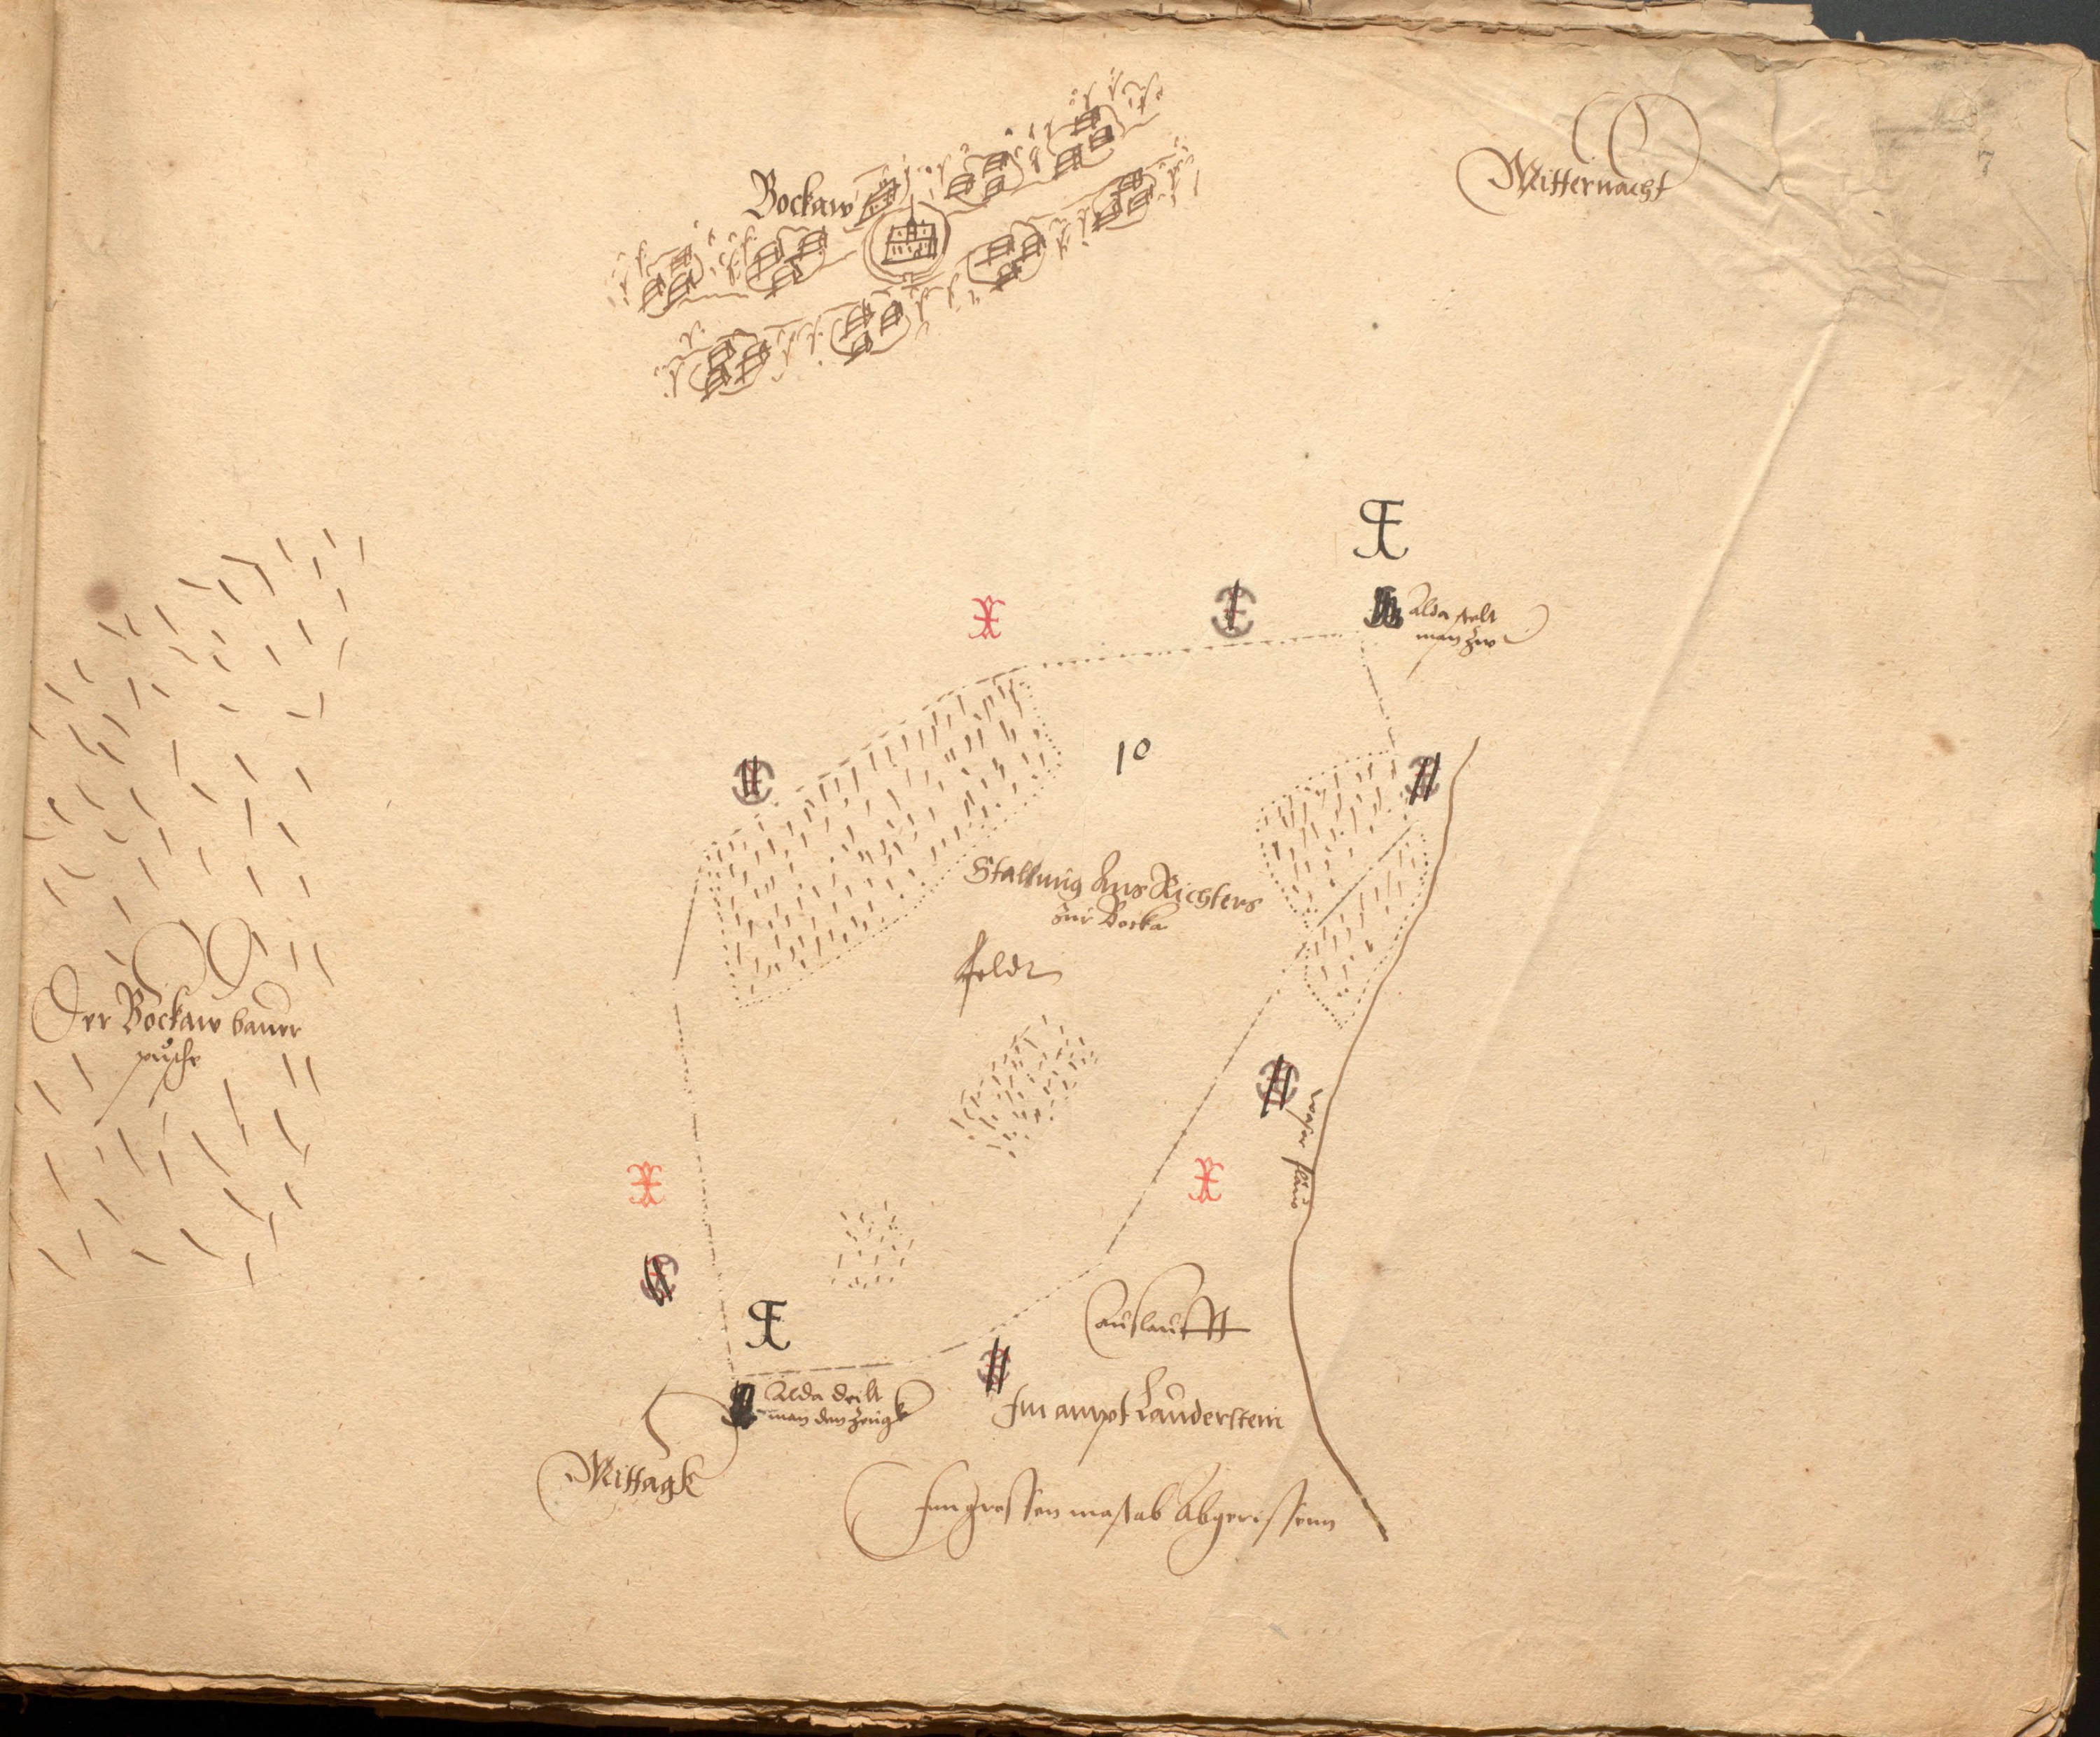 7
Mitternacht
Bockaw
Alda stelt
man zw
10
Stallung Aus Richters
zur Bocka
feldt
Der Bockaw bauer
pusche
wasser flus
auslaufft
Alda deilt
man den zeugk
Im ampt Lauderstein
Mittagk
Im grossen mastab Abgerissenn